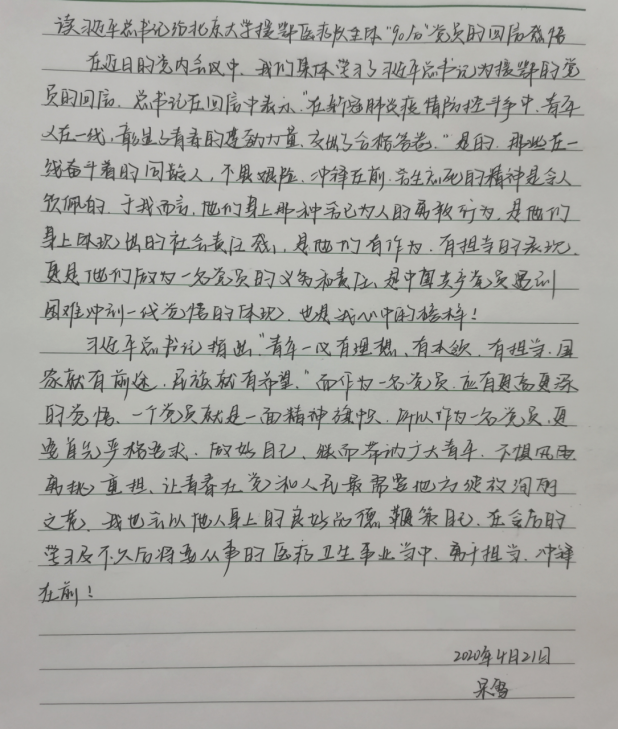 读习近平总书记给北京大学援鄂医疗队全体“90后”党员的回信感悟
在近日的党内会议中，我们集体学习了习近平总书记为援鄂的党
员的回信，总书记在回信中表示“在新冠肺炎疫情防控斗争中，青年
人在一线，彰显了青春的蓬勃力量，交出了合格答卷。”是的，那些在一
线奋斗着的同龄人，不畏艰险、冲锋在前、舍生忘死的精神是令人
钦佩的，于我而言，他们身上那种舍己为人的勇敢行为，是他们
身上体现出的社会责任感，是他们有作为、有担当的表现，
更是他们成为一名党员的义务和责任，是中国共产党员遇到
困难冲到一线党悟的体现，也是我心中的榜样！
习近平总书记指出，“青年一代有理想、有本领、有担当，国
家就有前途，民族就有希望。”而作为一名党员，应有更高更深
的党悟，一个党员就是一面精神旗帜，所以作为一名党员，更
要首先严格要求，做好自己，继而带动广大青年，不惧风雨
勇挑重担，让青春在党和人民最需要地方绽放绚丽
之花，我也会以他人身上的良好品德，鞭策自己，在今后的
学习及不久后将要从事的医疗卫生事业当中，勇于担当、冲锋
在前！
2020年4月21日